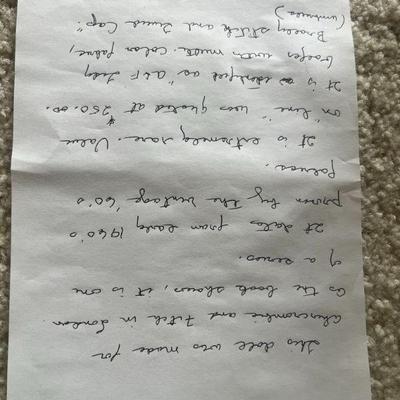 This doll was made for
Abercrombie and Fitch in London.
As the book shows, it is one
of a series.
It dates from early 1960's
proven by the vintage '60's
fabrics.
It is extremely rare. Value
on "line" was quoted at $250.00.
It is identified as "A & F
with multi color fabric,
Brolley stick and Tweed Cap".
(umbrella)